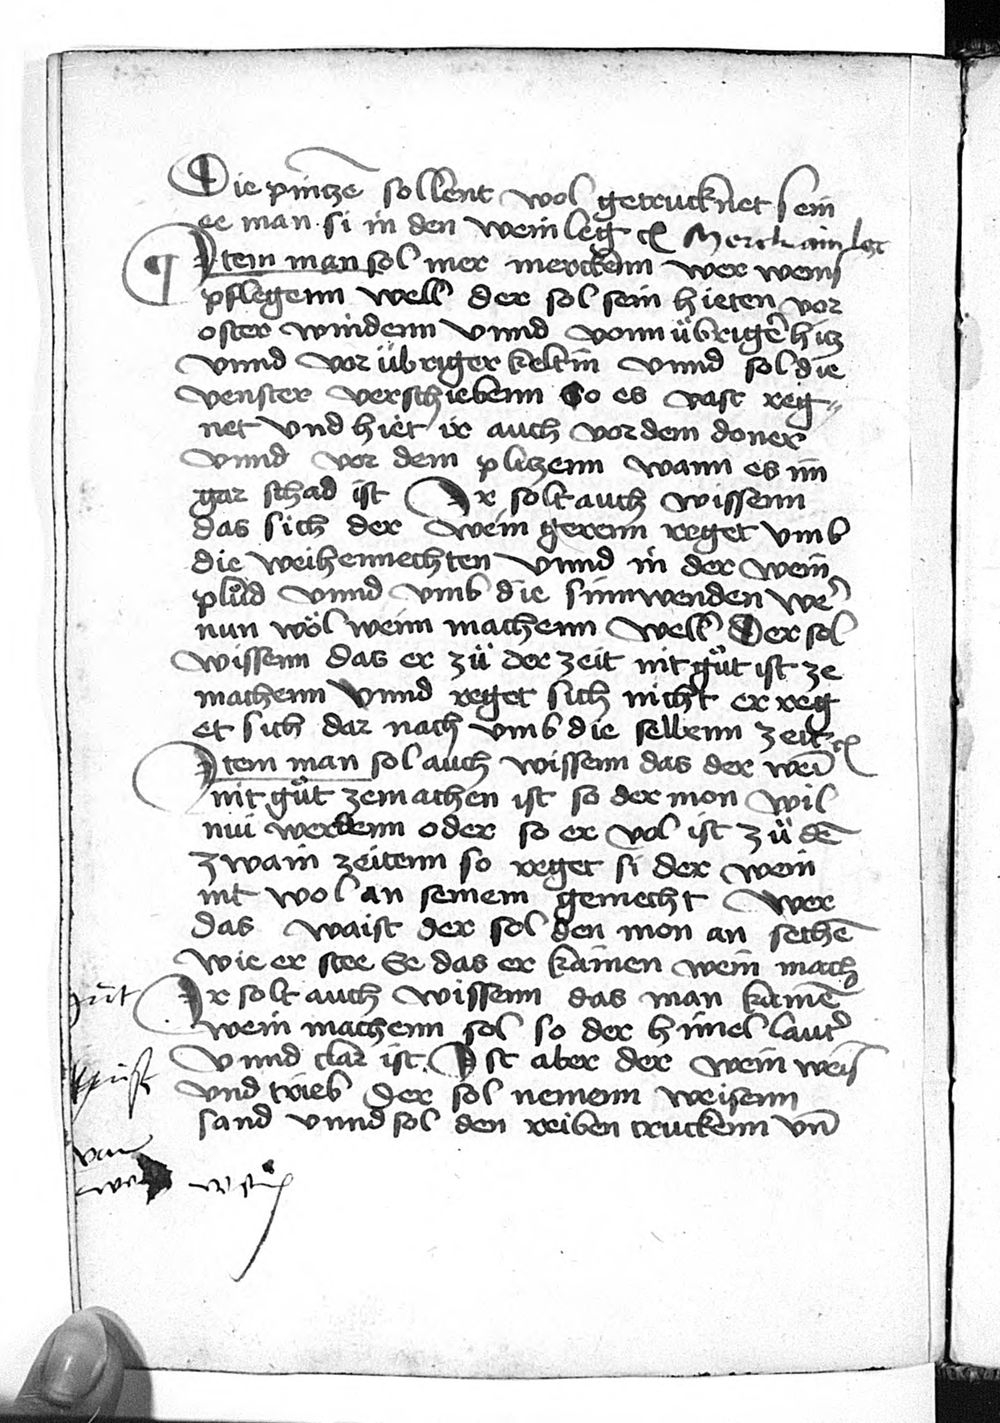 Die pintzē sollent wol getrucknet sein
ee man si in den wein leg Merck ain ler
¶ Item man sol mer merckenn wer weins
pflegenn well der sol sein hieten vor
oster windenn vnnd vonn übrigēr hitz
vnnd vor übriger keltin vnnd sol die
venster verschiebenn so es vast reg„
net vnd hiet ir auch vor dem doner
vnnd vor dem plitzenn wann es im
gar schad ist Ir solt auch wissenn
das sich der wein gerenn reget vmb
die weihennechten vnnd in der wein
plůd vnnd vmb die sunnwenden wer
nun wöl wein machenn well Der sol
wissenn das er zü der zeit nit gůt ist ze
machenn vnnd reget sich nicht er reg
et sich dar nach vmb die selbenn zeit
Item man sol auch wissenn das der wein
nit gůt zemachen ist so der mon wil
nui werdenn oder so er vol ist zü dē
zwain zeitenn so reget si der wein
nit wol an seinem gemecht Wer
das waist der sol den mon an sechē
wie er stee Se das er kainen wein mach
Ir solt auch wissenn das man kainē
wein machenn sol so der himel lauter
vnnd clar ist. Ist aber der wein weis
vnd trieb der sol nemenn weisenn
sand vnnd sol den reiben truckenn vn̄
gut
von